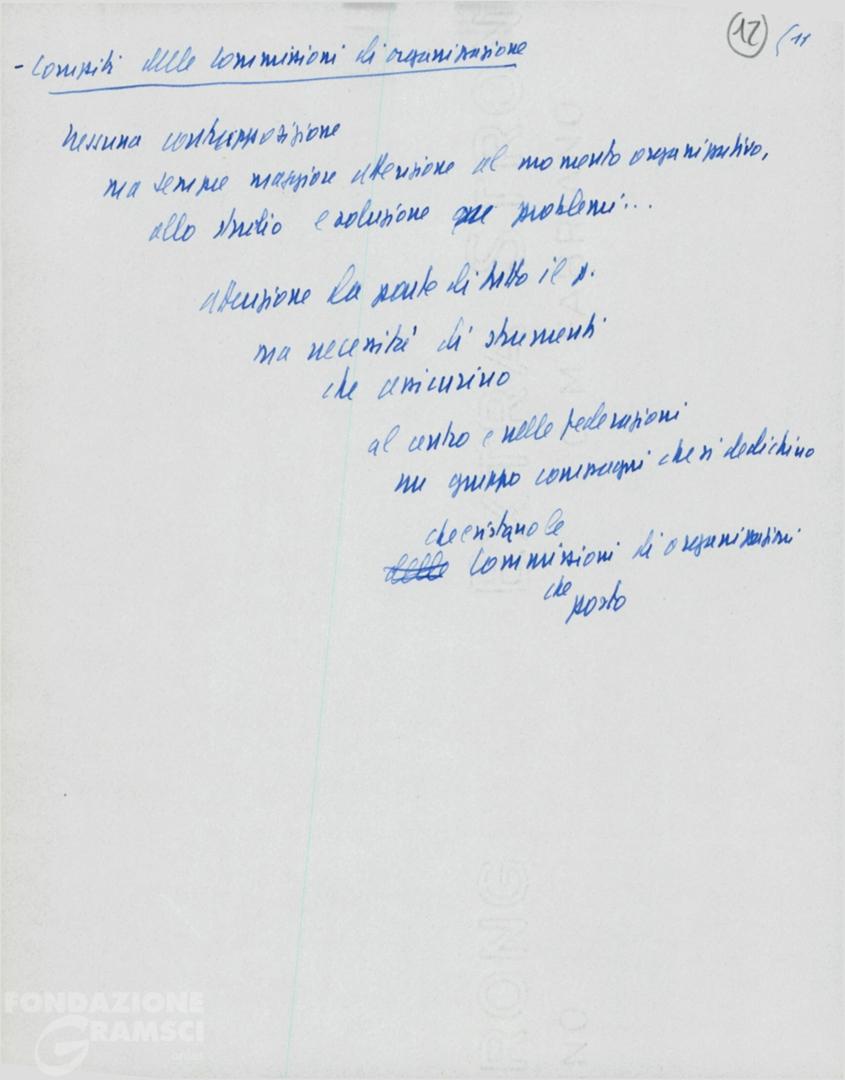 12 (11
- Compiti delle Commissioni di organizzazione
Nessuna contrapposizione
ma sempre maggiore attenzione al momento organizzativo,
allo studio e soluzione problemi...
attenzione da parte di tutto il p.
ma necessità di strumenti
che assicurino
al centro e nelle federazioni
un gruppo compagni che si dedichino
che esistano le
delle Commissioni di organizzazioni
che
posto
FONDAZIONE
GRAMSCI
onlus